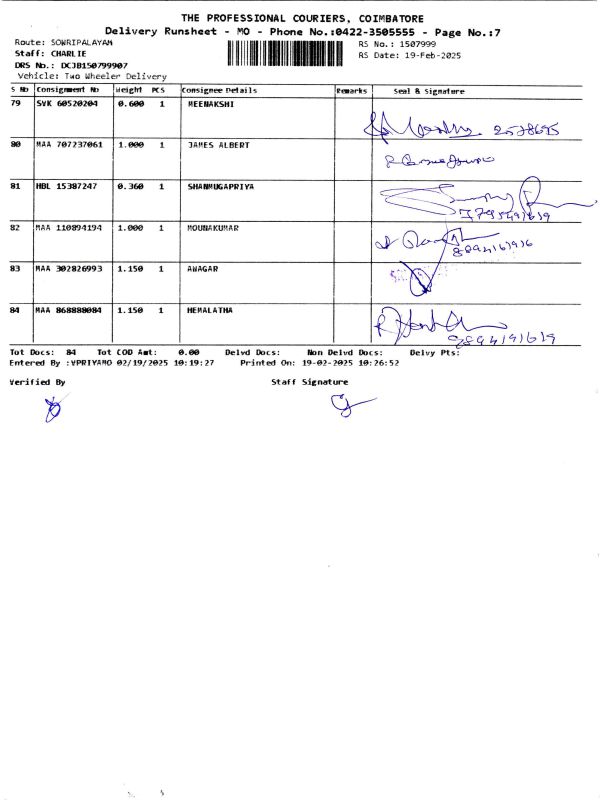 THE PROFESSIONAL COURIERS, COIMBATORE
Delivery Runsheet - MO - Phone No.:0422-3505555 - Page No.:7
Route: SOWRIPALAYAM RS No.: 1507999
Staff: CHARLIE RS Date: 19-Feb-2025
DRS No.: DCJB150799907
Vehicle: Two Wheeler Delivery
S No Consignment No Weight PCS Consignee Details Remarks Seal & Signature
79 SVK 60520204 0.600 1 MEENAKSHI
80 MAA 707237061 1.000 1 JAMES ALBERT
81 HBL 15387247 0.360 1 SHANMUGAPRIYA
82 MAA 110894194 1.000 1 MOUNAKUMAR
83 MAA 302826993 1.150 1 AWAGAR
84 MAA 868888084 1.150 1 HEMALATHA
Tot Docs: 84 Tot COD Amt: 0.00 Delvd Docs: Non Delvd Docs: Delvy Pts:
Entered By :VPRIYAMO 02/19/2025 10:19:27 Printed On: 19-02-2025 10:26:52
Verified By Staff Signature